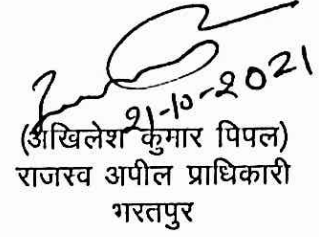 21-10-2021
(अखिलेश कुमार पिपल)
राजस्व अपील प्राधिकारी
भरतपुर